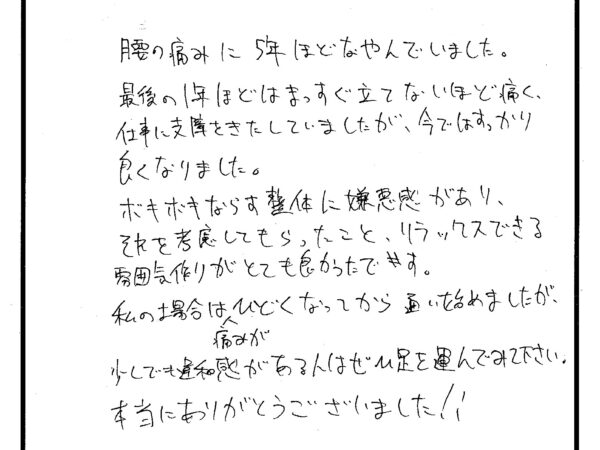 腰の痛みに5年ほどなやんでいました。
最後の1年ほどはまっすぐ立てないほど痛く、
仕事に支障をきたしていましたが、今ではすっかり
良くなりました。
ボキボキならす整体に嫌悪感があり、
それを考慮してもらったこと、リラックスできる
雰囲気作りがとても良かったです。
私の場合は痛みがひどくなってから通い始めましたが、
少しでも違和感がある人はぜひ足を運んでみて下さい。
本当にありがとうございました!!